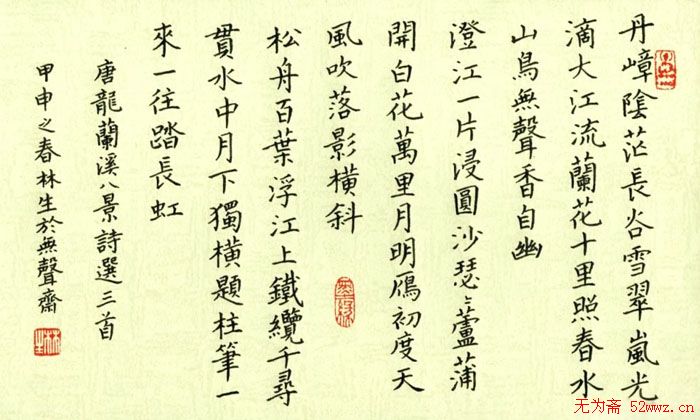 丹嶂陰茫長谷雪翠嵐光
滴大江流蘭花十里照春水
山鳥無聲香自幽
澄江一片浸圓沙瑟〻蘆蒲
開白花萬里月明鴈初度天
風吹落影橫斜
松舟百葉浮江上鐵纜千尋
貫水中月下獨橫題柱筆一
來一往踏長虹
唐龍蘭溪八景詩選三首
甲申之春林生於無聲齋
无为斋 52wwz.cn